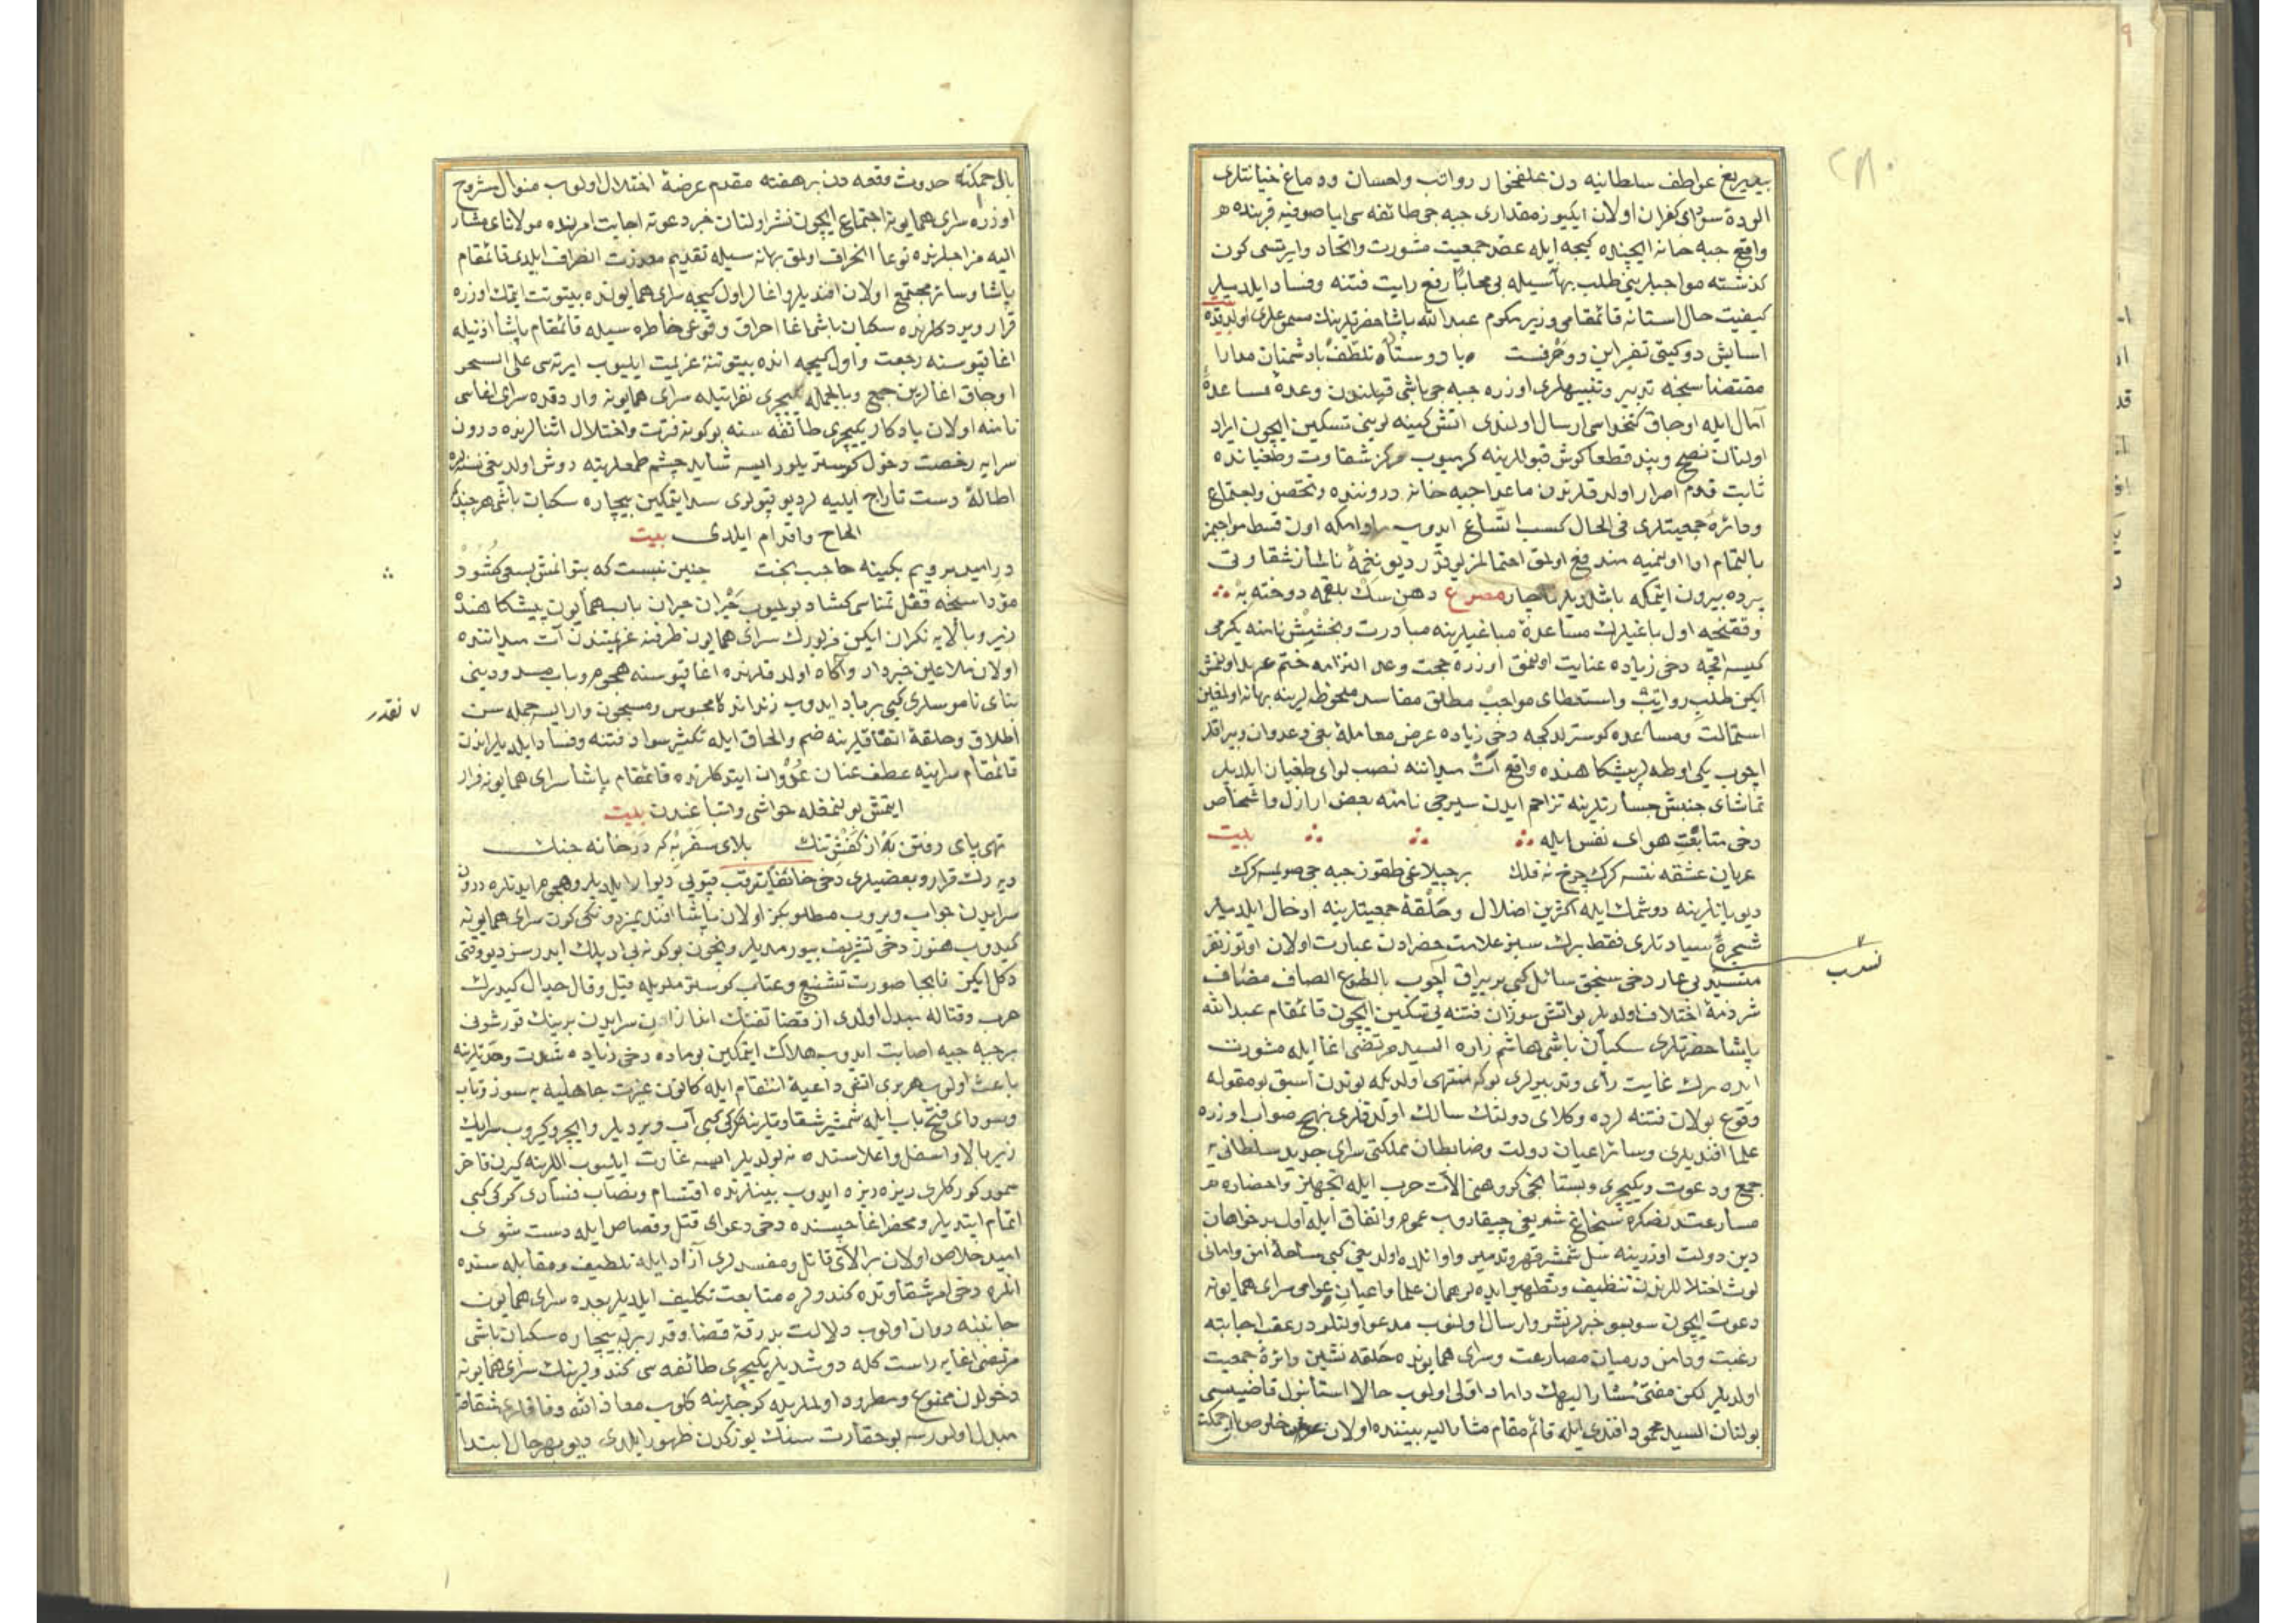 بیدریغ عواطف سلطانیه دن علفخوار رواتب واحسان ودماغ خیانتلری
الوده سودای کفران اولان ایکیوز مقداری جبه جی طائفه سی ایا صوفیه قربنده
واقع جبه خانه ایچنده کیجه ایله عقد جمعیت مشورت واتحاد وایرتسی کون
کذشته مواجبلرینی طلب بهانه سیله بی محابا رفع رایت فتنه وفساد ایلدیلر
کیفیت حال استانه قائمقامی وزیر مکرم عبد الله پاشا حضرتلرینک مسموعلری اولدقده بیت
اسایش دو کیتی تفسیر این دو حرفست با دوستان تلطف با دشمنان مدارا
مقتضاسنجه تدبیر وتنبیهلری اوزره جبه جی باشی قبلندن وعده مساعده
آمال ایله اوجاق کتخداسی ارسال اولندی اتش کینه لرینی تسکین ایچون ایراد
اولنان نصح وپند قطعا کوش قبوللرینه کرمیوب مرکز شقاوت وطغیانده
ثابت قدم اصرار اولدقلرندن ماعدا جبه خانه دروننده وتحصن واجتماع
ودائره جمعیتلری فی الحال کسب اتساع ایدوب اون قسط مواجبمز
بالتمام ادا اولنمیه مندفع اولمق احتمالمز یوقدر دیو نغمه ناساز شقاوتی
پرده بیرون ایتمکه باشلدیلر ناچار مصرع دهن سک بلقمه دوخته به
وفقنجه اول باغیلرک مساعده مباغیلرینه مبادرت وبخشیش نامنه یکرمی
کیسه اقچه دخی زیاده عنایت اولنمق اوزره حجت وعد التزامه ختم عهد اولنمش
ایکن طلب رواتب واستعطای مواجب مطلق مفاسد ملحوظه لرینه بهانه اولمغین
استمالت ومساعده کوسترلدکجه دخی زیاده عرض معامله بغی وعدوان وبیراقلر
اچوب یکی اوطه لر پیشکاهنده واقع آت میداننه نصب لوای طغیان ایلدیلر
تماشای جنبش جسارتلرینه تزاحم ایدن سیرجی نامنه بعض اراذل واشخاص
دخی متابعت هوای نفس ایله بیت
عریان عشقه ننسه کرک چرخ نه فلک بر چیپلاغی طقوز جبه جی صویمسه کرک
دیو یانلرینه دوشمک ایله اکثرین اضلال وحلقه جمعیتلرینه ادخال ایلدیلر
شجره سیادتلری فقط برک سبز علامت خضرادن عبارت اولان اوتوز نفر
نسب
متسید بی عار دخی سنجق سائل کبی بر بیراق آچوب بالطوع الصاف مضاف
شرذمه اختلاف اولدیلر بو اتش سوزان فتنه یی تسکین ایچون قائمقام عبد الله
پاشا حضرتلری سکبان باشی هاشم زاده السید مرتضی اغا ایله مشورت
ایده رک غایت رأی وتدبیرلری بوکه منتهی اولدیکه بوندن اسبق بو مقوله
وقوع بولان فتنه لرده وکلای دولتک سالک اولدقلری نهج صواب اوزره
علما افندیلری وسائر اعیان دولت وضابطان مملکتی سرای جدید سلطانی یه
جمع ودعوت ویکیچری وبستانجی کروهنی الات حرب ایله تجهیز واحضاره
مسارعتدنصکره سنجاغ شریفی چیقاروب عموم واتفاق ایله اول بدخواهان
دین دولت اوزرینه سل شمشیر قهر وتدمیر واوائلده اولدیغی کبی ساحه امن وامانی
لوث اختلاللرندن تنظیف وتطهیر ایده لر همان علما واعیان عوامی سرای همایونه
دعوت ایچون سوبسو خبرلر نشر وارسال اولنوب مدعو اولنلر در عقب اجابته
رغبت ودامن درمیان مصارعت وسرای همایونده حلقه نشین دائره جمعیت
اولدیلر لکن مفتی مشار الیهک داماد اولی اولوب حالا استانبول قاضیسی
بولنان السید محمود افندی ایله قائم مقام مشار الیه بیننده اولان خلوص
بالحکمه حدوث وقعه دن بر هفته مقدم عرضه اختلال اولوب منوال مشروح
اوزره سرای همایونه اجتماع ایچون نشر اولنان خبر دعوته اجابت امرنده مولانای مشار
الیه مزاجلرنده نوعا انحراف اولمق بهانه سیله تقدیم معذرت انصراف ایلدی قائمقام
پاشا وسائر مجتمع اولان افندیلر واغالر اول کیجه سرای همایونده بیتوتت ایتمک اوزره
قرار ویردکلرنده سکبان باشی اغا احراق وقوعی خاطره سیله قائمقام پاشا اذنیله
اغا قپوسنه رجعت واول کیجه انده بیتوتته عزیمت ایلیوب ایرتسی علی السحر
اوجاق اغالرین جمع وبالجمله یکیچری نفراتیله سرای همایونه واردقده سرای اغاسی
نامنه اولان یادکار یکیچری طائفه سنه بوکونه فترت واختلال اثنالرنده درون
سرایه رخصت دخول کوستریلور ایسه شاید چشم طمعلرینه دوش اولدیغی نسنلره
اطاله دست تاراج ایلیه لر دیو قپولری سد ایتمکین بیچاره سکبان باشی هر چند که
الحاح واقدام ایلدی بیت
در امید برویم بکینه حاجب بخت چنین نبست که بتوانمش بسعی کشود
مؤداسنجه قفل تمناسی کشاد بولمیوب حیران حیران باب همایون پیشکاهنده
زیر وبالایه نکران ایکن مزبورک سرای همایون طرفنه عزیمتندن آت میداننده
اولان ملاعین خبردار وآکاه اولدقلرنده اغا قپوسنه هجوم وباب مسدودینی
بنای ناموسلری کبی برباد ایدوب زنداننده محبوس ومسجون وار ایسه جمله سن
نقدر
اطلاق وحلقه اتفاقلرینه ضم والحاق ایله تکثیر سواد فتنه وفساد ایلدیلر اندن
قائمقام سراینه عطف عنان عدوان ایتدکلرنده قائمقام پاشا سرای همایونه فرار
ایتمش بولنمغله حواشی واتباعندن بیت
تهی پای رفتن به از کفش تنک بلای سفر به که در خانه جنک
دیه رک فرار وبعضیلری دخی خائفا یترقب قپویی دیوار ایلدیلر وهجوم ایدنلره درون
سرایدن جواب ویروب مطلوبکز اولان پاشا افندیمز دونکی کون سرای همایونه
کیدوب هنوز دخی تشریف بیورمدیلر ونیچون بوکونه بی ادبلک ایدرسز دیو وقتی
دکل ایکن نابجا صورت تشنیع وعتاب کوسترملریله قیل وقال جدال کیده رک
حرب وقتاله مبدل اولدی از قضا تفنک اندازان سرایدن برینک قورشونی
بر جبه جیه اصابت ایدوب هلاک ایتمکین بو ماده دخی زیاده شدت وحدتلرینه
باعث اولوب هر بری اتفی داعیه انتقام ایله کانون غیرت جاهلیه یه سوز وتاب
وسودای فتح باب ایله شمشیر شقاوتلرینه کبی آب ویردیلر وایچرو کیروب سرایک
زیر وبالا واسفل واعلاسنده نه بولدیلر ایسه غارت ایلیوب اللرینه کیرن فاخر
سمور کورکلری ریزه ریزه ایدوب بینلرنده اقتسام ونصاب فسادی کورکی کبی
اتمام ایتدیلر ومحضر اغا حبسنده دخی دعوای قتل وقصاص ایله دست شوی
امید خلاص اولان بر الای قاتل ومفسدلری آزاد ایله تلطیف ومقابله سنده
انلره دخی امر شقاوتده کندولره متابعت تکلیف ایلدیلر بعده سرای همایون
جانبنه روان اولوب دلالت بدرقه قضا وقدر برله بیچاره سکبان باشی
مرتضی اغایه راست کله دوشدیلر یکیچری طائفه سی کندولرینک سرای همایونه
دخولدن ممنوع ومطرود اولملریله کوجلرینه کلوب معاذ الله وفاقلری شقاقه
مبدل اولورسه بو حقارت سنک یوزکدن ظهور ایلدی دیو بهر حال ابتدا